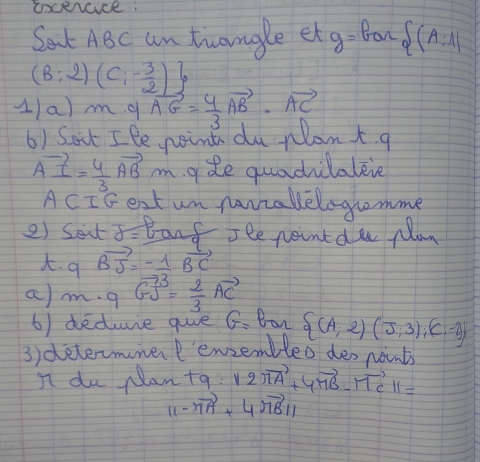 Exercice :
Soit ABC un triangle et g = bar {(A; 1)
(B; 2) (C; -3/2) }
1) a) m.q AG = 4/3 AB - AC
b) Soit I le points du plan t.q
AI = 4/3 AB m.q le quadrilatére
ACIG est un parrallélogramme
2) Soit J = bar { J le point du plan
t.q BJ = -1/3 BC
a) m.q GJ = 2/3 AC
b) déduire que G = bar {(A; 2) (J; 3),
3) déterminer l'ensembles des points
M du plan tq : || 2MA + 4MB - MC || =
|| -MA + 4MB ||